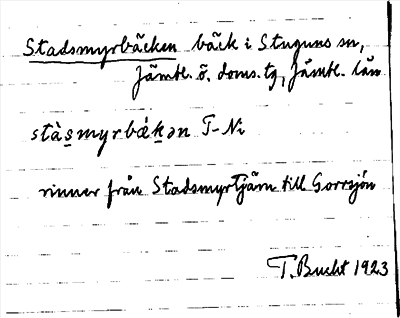 Stadsmyrbäcken bäck i Stuguns sn,
Jämtl. ö. doms. tg, Jämtl. län
stàs̱myrbǽḵən T-Ni
rinner från Stadsmyrtjärn till Gorrsjön
T. Bucht 1923